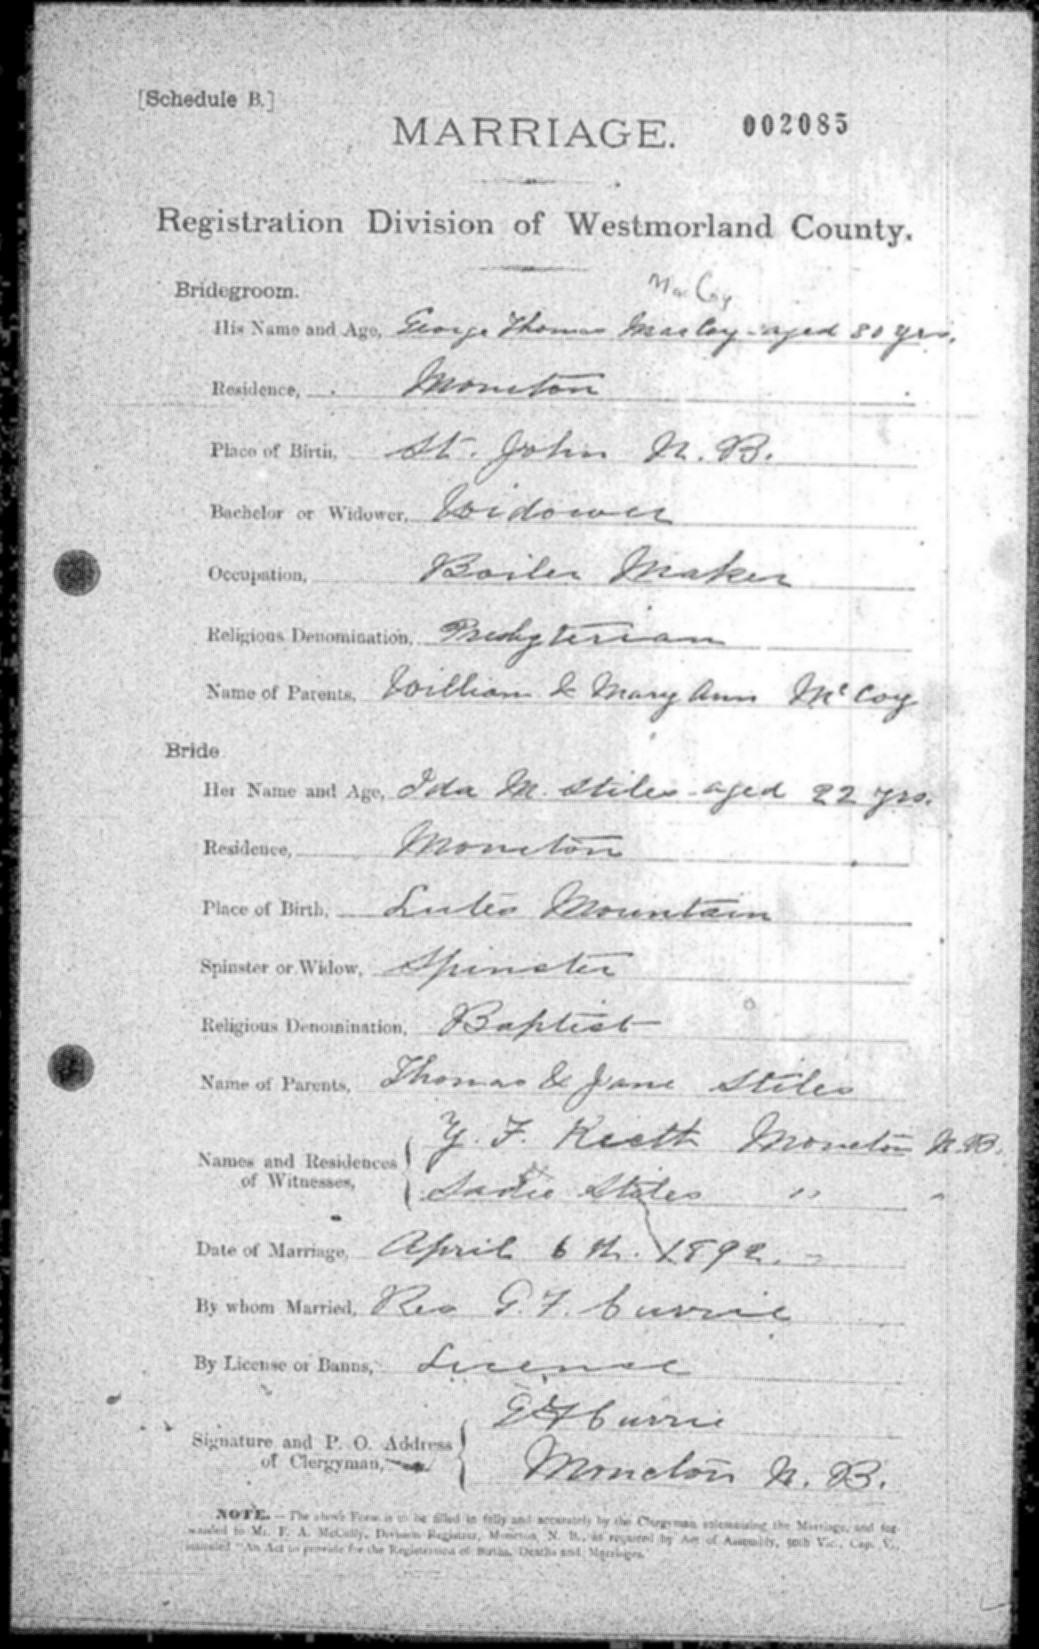 [Schedule B.]
MARRIAGE. 002085
Registration Division of Westmorland County.
Mac Coy
Bridegroom.
His Name and Age, George Thomas MacCoy - aged 30 yrs.
Residence, Moncton
Place of Birth, St. John N. B.
Bachelor or Widower, Widower
Occupation, Boiler Maker
Religious Denomination, Presbyterian
Name of Parents, William & Mary Ann McCoy
Bride
Her Name and Age, Ida M. Stiles - aged 22 yrs.
Residence, Moncton
Place of Birth, Lutes Mountain
Spinster or Widow, Spinster
Religious Denomination, Baptist
Name of Parents, Thomas & Jane Stiles
Names and Residences of Witnesses,
F. Keith Moncton N.B.
Sadie Stiles " "
Date of Marriage, April 6th. 1892.
By whom Married, Rev G. F. Currie
By License or Banns, License
Signature and P. O. Address of Clergyman,
G F Currie
Moncton N. B.
NOTE. — The above Form is to be filled in fully and accurately by the Clergyman solemnizing the Marriage, and for
warded to Mr. F. A. McCully, Division Registrar, Moncton, N. B., as required by Act of Assembly, 50th Vic., Cap. V.,
intituled "An Act to provide for the Registration of Births, Deaths and Marriages."